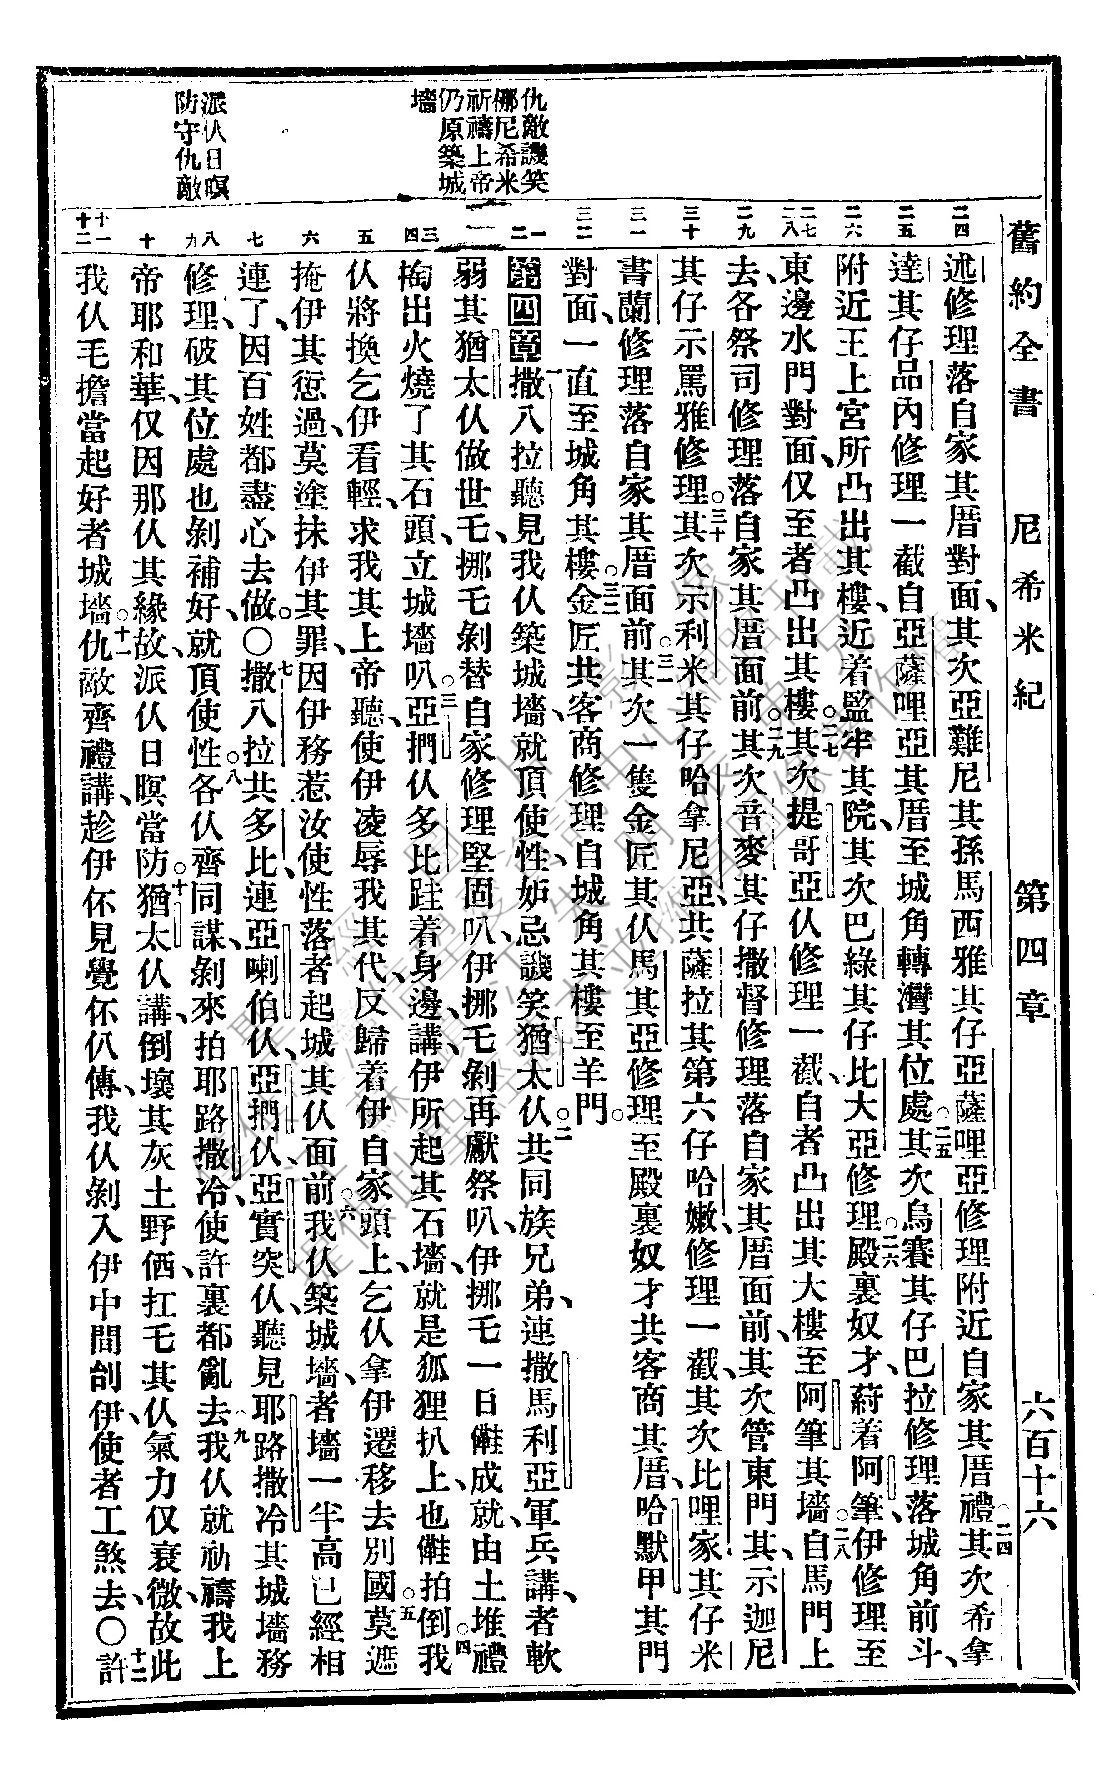 舊約全書　尼希米紀　第四章　六百十六
仇敵譏笑
挪尼希米
祈禱上帝
仍原築城
墻
派仈日暝
防守仇敵
述修理落自家其厝對面、其次亞難尼其孫馬西雅其仔亞薩哩亞修理附近自家其厝禮○二四其次希拿
達其仔品內修理一截、自亞薩哩亞其厝至城角轉灣其位處○二五其次烏賽其仔巴拉修理落城角前斗、
附近王上宮所凸出其樓、近着監牢其院、其次巴綠其仔比大亞修理○二六殿裏奴才、蒔着阿筆、伊修理至
東邊水門對面、仅至者凸出其樓○二七其次提哥亞仈修理一截、自者凸出其大樓、至阿筆其墻○二八自馬門上
去、各祭司修理落自家其厝面前○二九其次音麥其仔撒督修理落自家其厝面前、其次管東門其、示迦尼
其仔示罵雅修理○三十其次示利米其仔哈拿尼亞、共薩拉其第六仔哈嫩、修理一截、其次比哩家其仔米
書蘭修理落自家其厝面前○三一其次一隻金匠其仈馬其亞修理至殿裏奴才共客商其厝、哈默甲其門
對面、一直至城角其樓○三二金匠共客商修理自城角其樓至羊門○
第四章一撒八拉聽見我仈築城墻、就頂使性、妒忌譏笑猶太仈○二共同族兄弟、連撒馬利亞軍兵講、者軟
弱其猶太仈做世乇、挪乇剝替自家修理堅固叭、伊挪乇剝再獻祭叭、伊挪乇一日儺成就、由土堆禮
掏出火燒了其石頭、立城墻叭○三亞捫仈多比跬着身邊、講、伊所起其石墻、就是狐狸扒上也儺拍倒○四我
仈將換乞伊看輕、求我其上帝聽、使伊凌辱我其代、反歸着伊自家頭上、乞仈拿伊遷移去別國○五莫遮
掩伊其愆過、莫塗抹伊其罪、因伊務惹汝使性落者起城其仈面前○六我仈築城墻、者墻一半高已經相
連了、因百姓都盡心去做。○七撒八拉共多比連亞喇伯仈、亞捫仈、亞實突仈、聽見耶路撒冷其城墻務
修理、破其位處也剝補好、就頂使性○八各仈齊同謀、剝來拍耶路撒冷、使許裏都亂去○九我仈就祈禱我上
帝耶和華、仅因那仈其緣故、派仈日暝當防○十猶太仈講、倒壞其灰土野価、扛乇其仈氣力仅衰微、故此
我仈乇擔當起好者城墻○十一仇敵齊禮講、趁伊伓見覺、伓仈傳、我仈剝入伊中間刣伊、使者工煞去、○十二許